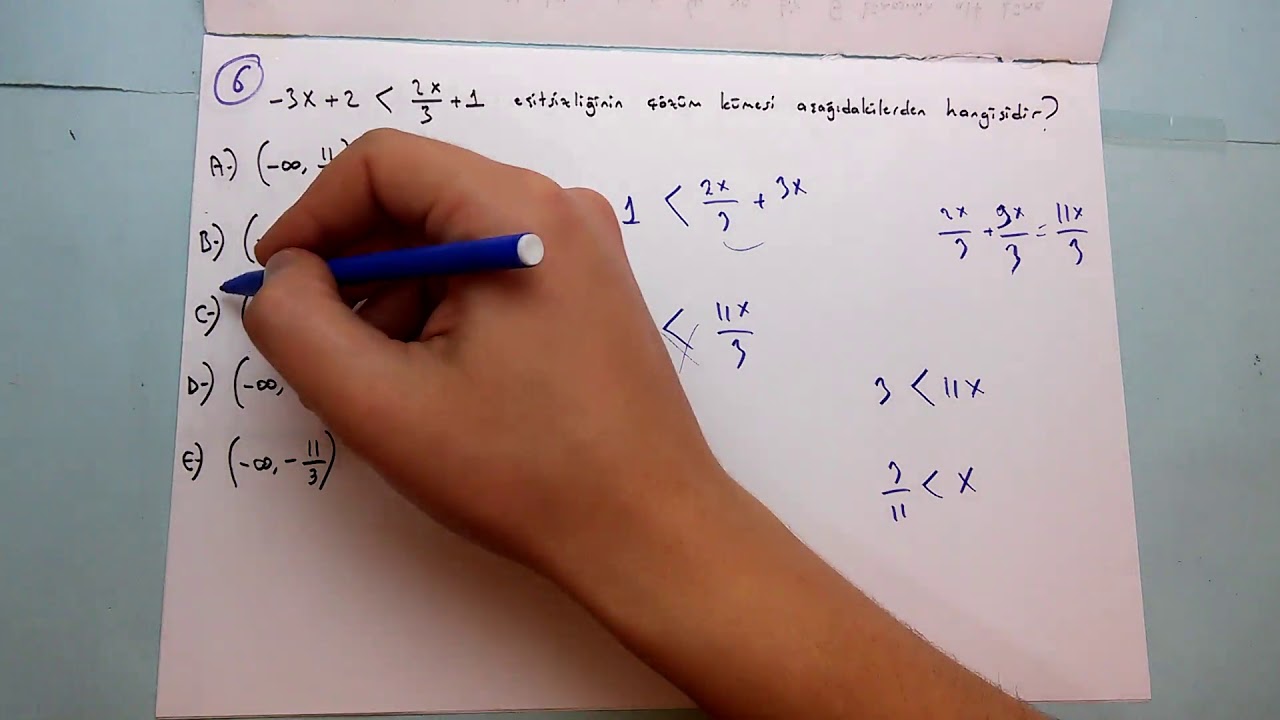 6
-3x + 2 < 2x/3 + 1 eşitsizliğinin çözüm kümesi aşağıdakilerden hangisidir?
A-) (-∞, 11
B-) (
C-) (
D-) (-∞,
E-) (-∞, -11/3)
1 < 2x/3 + 3x
< 11x/3
2x/3 + 9x/3 = 11x/3
3 < 11x
3/11 < x